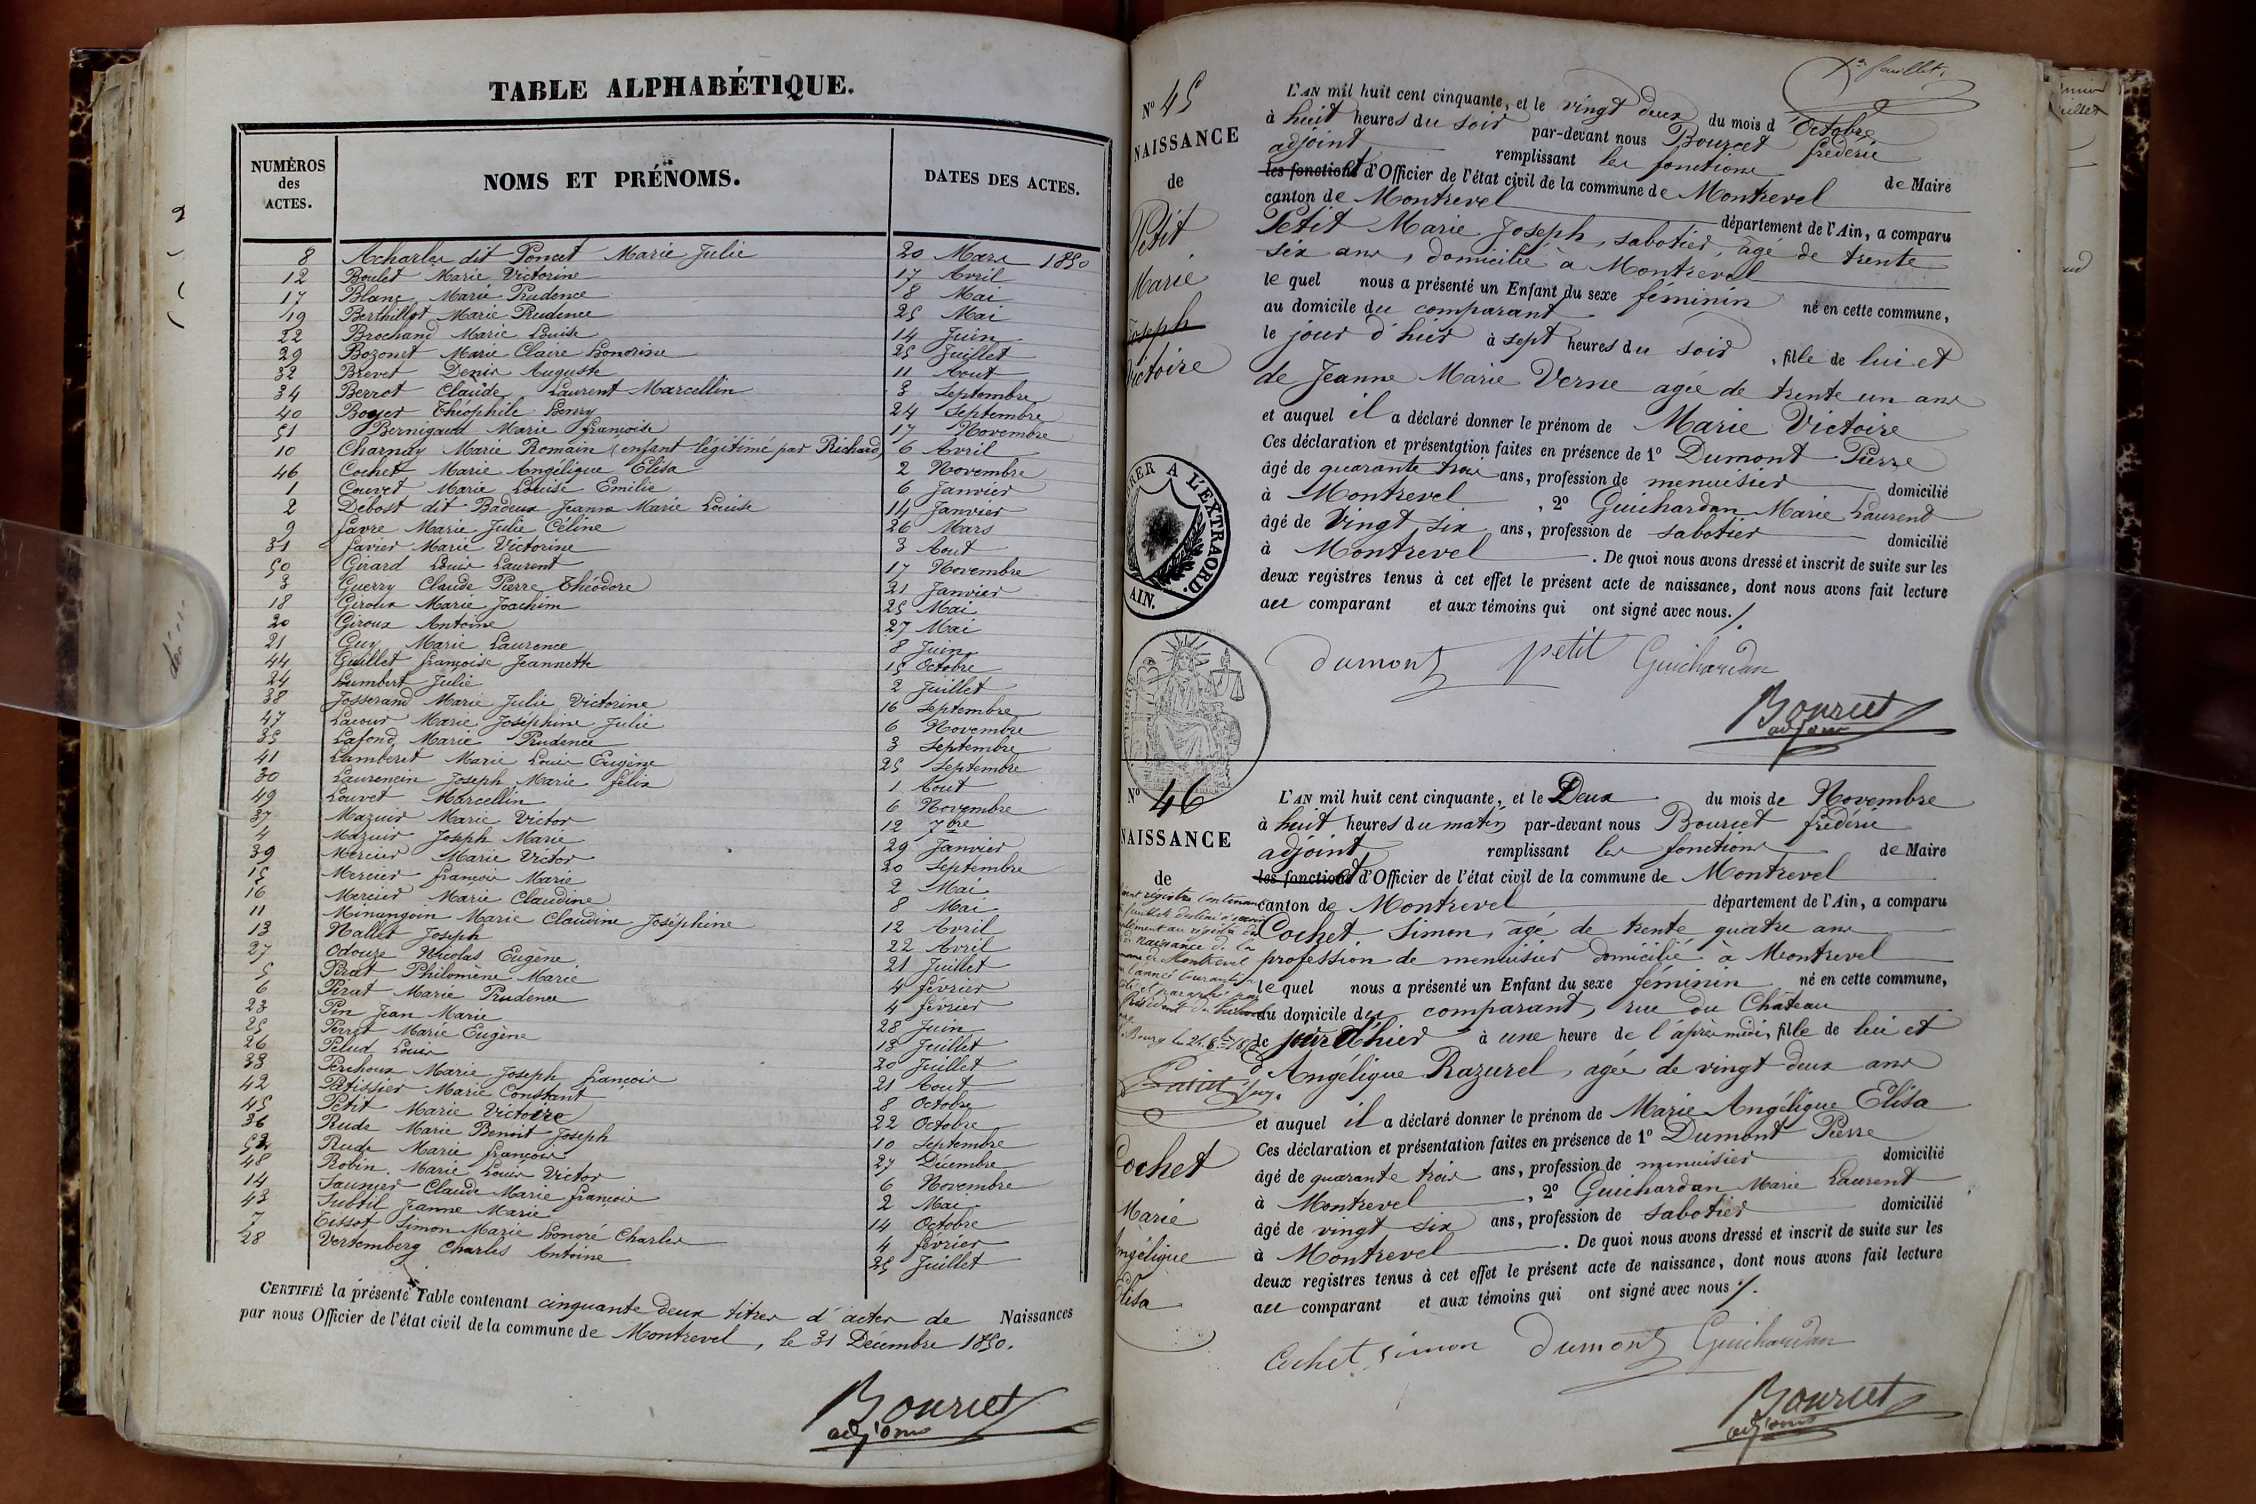 TABLE ALPHABÉTIQUE.
NUMÉROS des ACTES.
NOMS ET PRÉNOMS.
DATES DES ACTES.
8 Acharles dit Poncet Marie Julie 20 Mars 1850
12 Boulet Marie Victorine 17 Avril
17 Blanc Marie Prudence 8 Mai
19 Berthillot Marie Prudence 25 Mai
22 Brochand Marie Louise 14 Juin
29 Bozonet Marie Claire Honorine 25 Juillet
32 Brevet Denis Auguste 11 Aout
34 Berrot Claude Laurent Marcellin 3 Septembre
40 Boyer Théophile Henry 24 Septembre
51 Bernigaud Marie françoise 17 Novembre
10 Charnay Marie Romain (enfant légitimé par Richard) 6 Avril
46 Cochet Marie Angélique Elisa 2 Novembre
1 Couvet Marie Louise Emilie 6 Janvier
2 Debost dit Badoux Jeanne Marie Louise 14 Janvier
9 favre Marie Julie Céline 26 Mars
31 favier Marie Victorine 3 Aout
50 Girard Louis Laurent 17 Novembre
3 Guerry Claude Pierre Théodore 21 Janvier
18 Giroux Marie Joachim 25 Mai
20 Giroux Antoine 27 Mai
21 Guy Marie Laurence 8 Juin
44 Guillet françoise Jeannette 15 Octobre
24 Humbert Julie 2 Juillet
38 Josserand Marie Julie Victorine 16 Septembre
47 Lacour Marie Joséphine Julie 6 Novembre
35 Lafond Marie Prudence 3 Septembre
41 Lamberet Marie Louis Eugène 25 Septembre
30 Laurencin Joseph Marie félix 1 Aout
49 Louvet Marcellin 6 Novembre
37 Mazuir Marie Victor 12 7bre
4 Mazuir Joseph Marie 29 Janvier
39 Mercier Marie Victor 20 Septembre
15 Mercier françois Marie 2 Mai
16 Mercier Marie Claudine 8 Mai
11 Minangoin Marie Claudine Joséphine 12 Avril
13 Nallet Joseph 22 Avril
27 Odouze Nicolas Eugène 21 Juillet
5 Perat Philomène Marie 4 février
6 Perat Marie Prudence 4 février
23 Pin Jean Marie 28 Juin
25 Perret Marie Eugène 13 Juillet
26 Pelud Louis 20 Juillet
33 Perchoux Marie Joseph françois 21 Aout
42 Patissier Marie Constant 8 Octobre
45 Petit Marie Victoire 22 Octobre
36 Rude Marie Benoit Joseph 10 Septembre
52 Rude Marie françois 27 Décembre
48 Robin Marie Louis Victor 6 Novembre
14 Saunier Claude Marie françois 2 Mai
43 Subtil Jeanne Marie 14 Octobre
7 Tissot Simon Marie Honoré Charles 4 février
28 Vertemberg Charles Antoine 25 Juillet
CERTIFIÉ la présente Table contenant cinquante deux titres d'actes de Naissances
par nous Officier de l'état civil de la commune de Montrevel, le 31 Décembre 1850.
Bourcet
adjoint
feuillet.
N° 45
NAISSANCE
de
Petit
Marie
Joseph
Victoire
L'AN mil huit cent cinquante, et le vingt deux du mois d'Octobre
à huit heures du soir par-devant nous Bourcet fréderic
adjoint remplissant les fonctions de Maire
les fonctions et d'Officier de l'état civil de la commune de Montrevel
canton de Montrevel département de l'Ain, a comparu
Petit Marie Joseph, sabotier, âgé de trente
six ans, domicilié à Montrevel
le quel nous a présenté un Enfant du sexe féminin né en cette commune,
au domicile du comparant
le jour d'hier à sept heures du soir, fille de lui et
de Jeanne Marie Verne agée de trente un ans
et auquel il a déclaré donner le prénom de Marie Victoire
Ces déclaration et présentation faites en présence de 1° Dumont Pierre
âgé de quarante trois ans, profession de menuisier domicilié
à Montrevel, 2° Guichardan Marie Laurent
âgé de vingt six ans, profession de sabotier domicilié
à Montrevel. De quoi nous avons dressé et inscrit de suite sur les
deux registres tenus à cet effet le présent acte de naissance, dont nous avons fait lecture
au comparant et aux témoins qui ont signé avec nous./.
dumont petit Guichardan
Bourcet
adjoint
TIMBRER A L'EXTRAORD.
AIN.
N° 46
NAISSANCE
de
Cochet
Marie
Angélique
Elisa
L'AN mil huit cent cinquante, et le Deux du mois de Novembre
à huit heures du matin par-devant nous Bourcet fréderic
adjoint remplissant les fonctions de Maire
les fonctions et d'Officier de l'état civil de la commune de Montrevel
canton de Montrevel département de l'Ain, a comparu
Cochet Simon, âgé de trente quatre ans
profession de menuisier domicilié à Montrevel
le quel nous a présenté un Enfant du sexe féminin né en cette commune,
au domicile du comparant, rue du Château
le jour d'hier à une heure de l'après midi, fille de lui et
d'Angélique Razurel, agée de vingt deux ans
et auquel il a déclaré donner le prénom de Marie Angélique Elisa
Ces déclaration et présentation faites en présence de 1° Dumont Pierre
âgé de quarante trois ans, profession de menuisier domicilié
à Montrevel, 2° Guichardan Marie Laurent
âgé de vingt six ans, profession de sabotier domicilié
à Montrevel. De quoi nous avons dressé et inscrit de suite sur les
deux registres tenus à cet effet le présent acte de naissance, dont nous avons fait lecture
au comparant et aux témoins qui ont signé avec nous./.
Cochet Simon Dumont Guichardan
Bourcet
adjoint